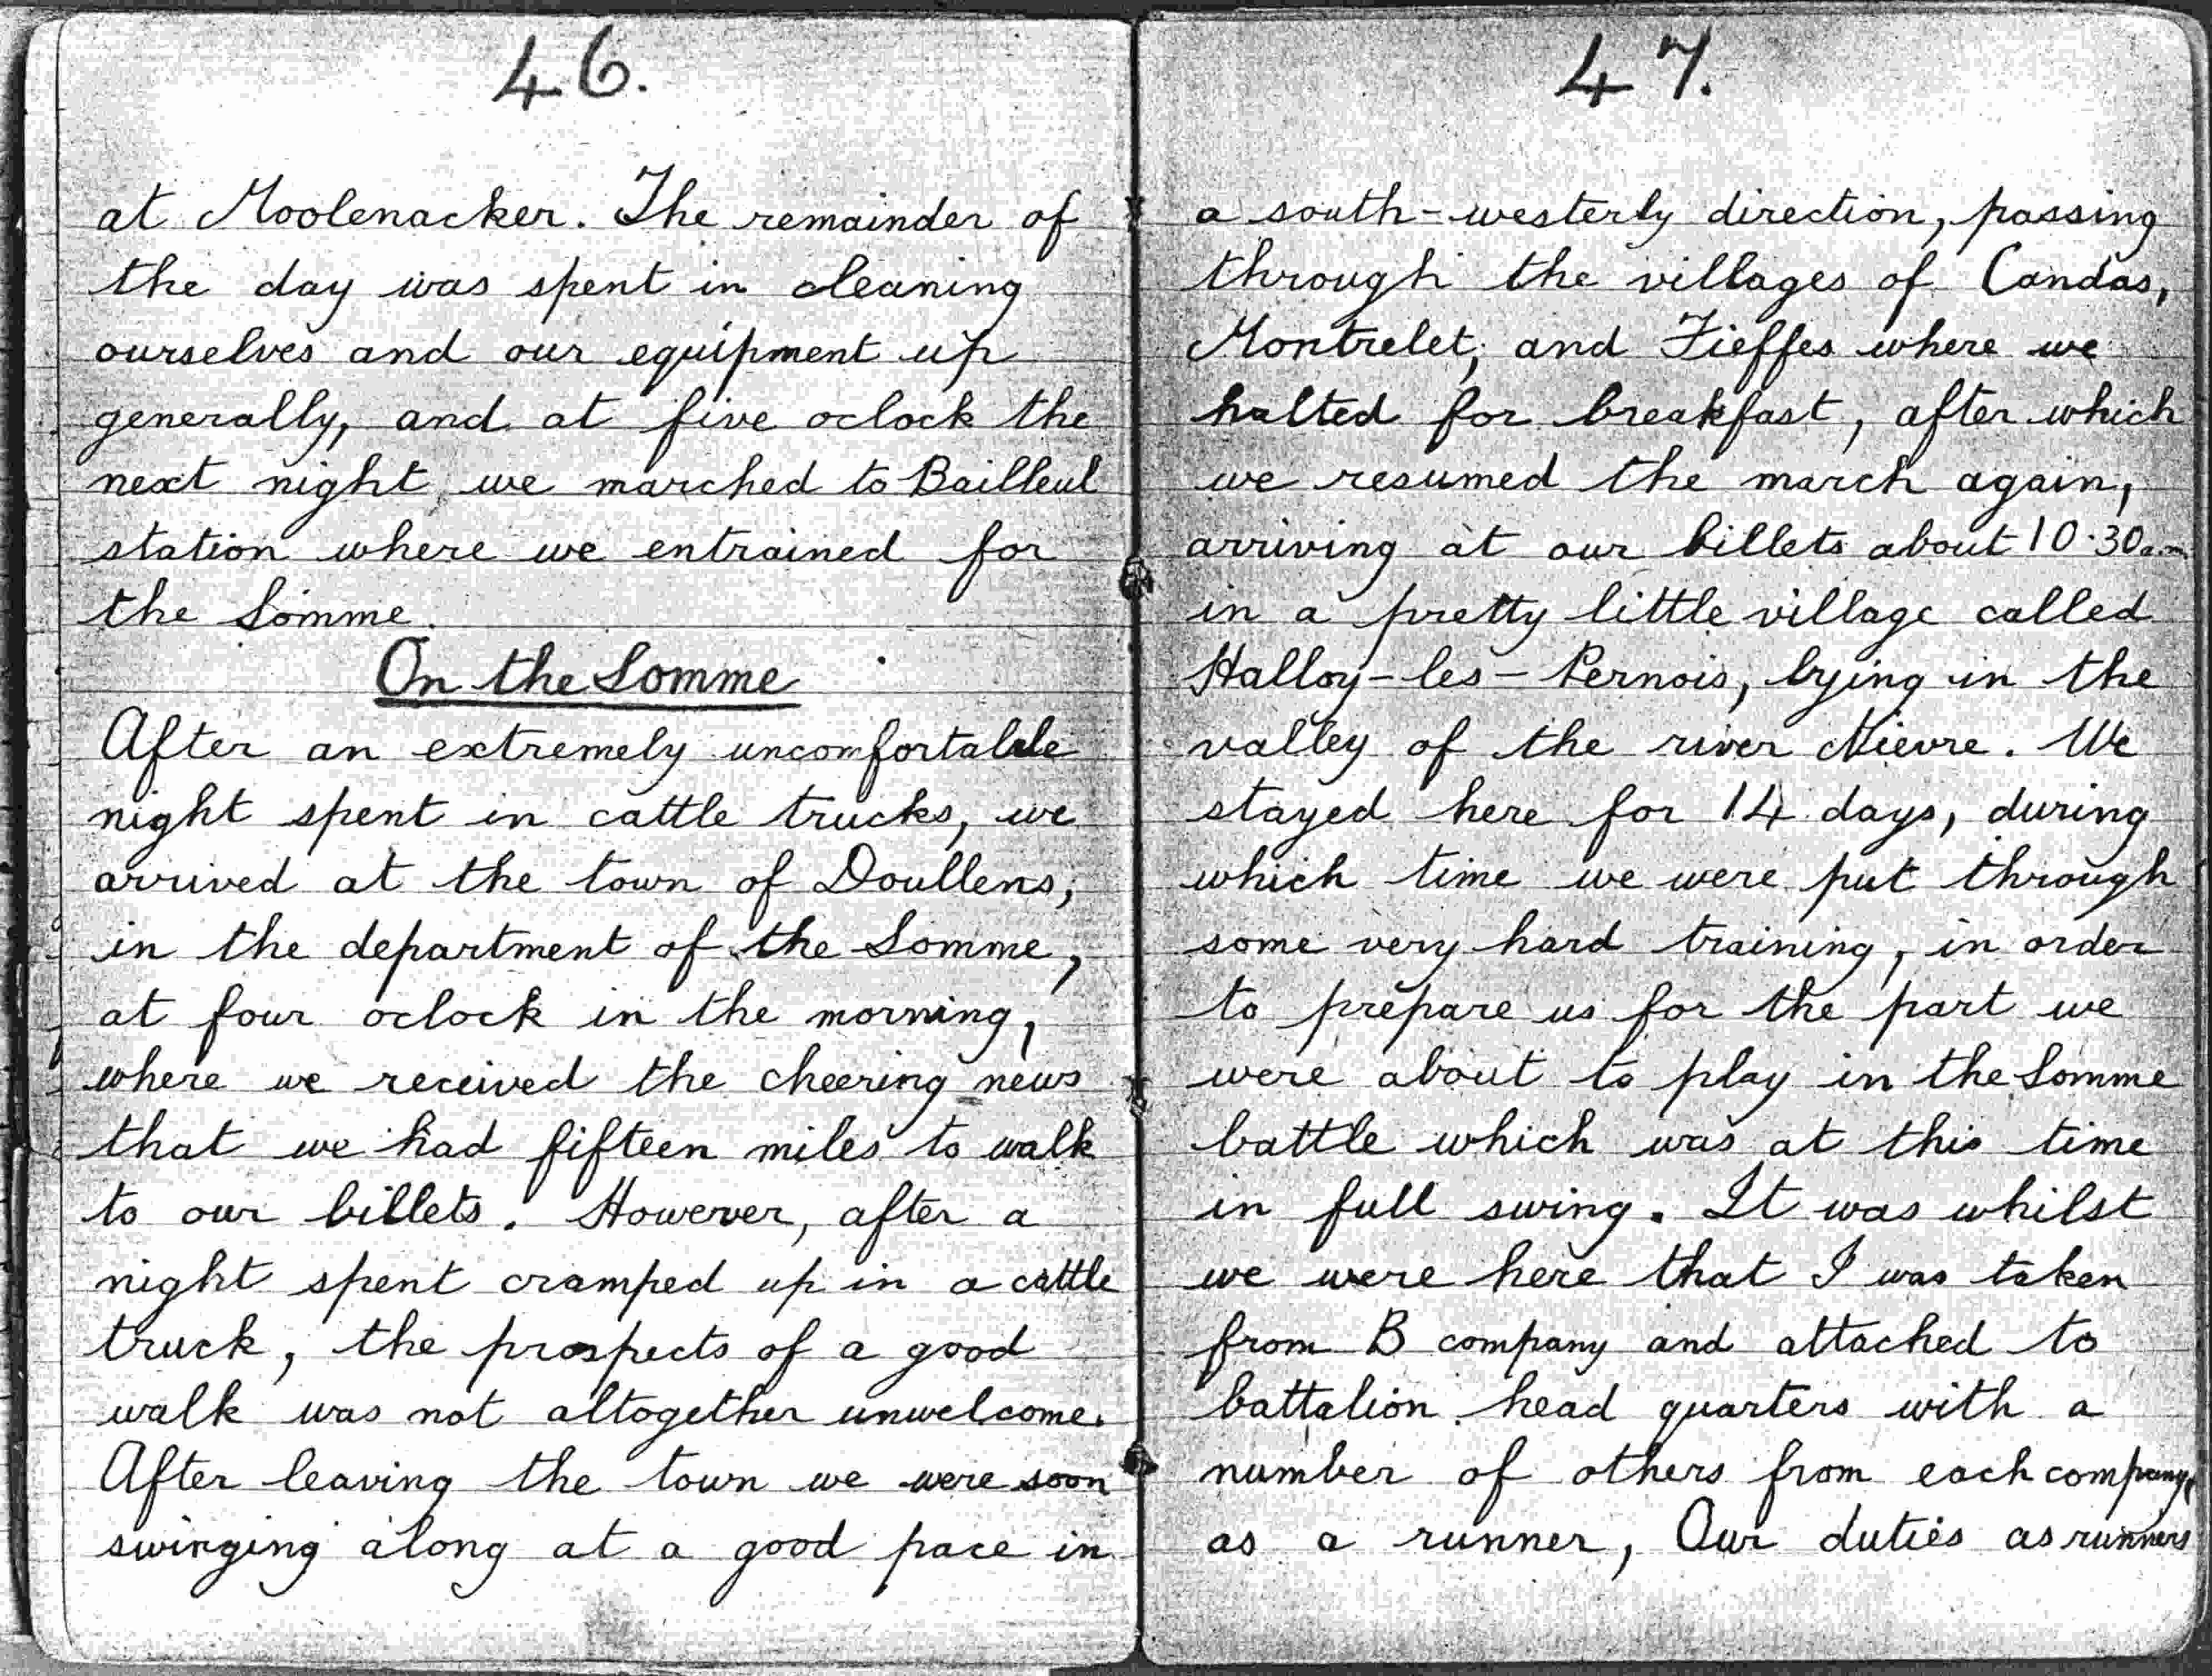 46.
at Moolenacker. The remainder of
the day was spent in cleaning
ourselves and our equipment up
generally, and at five oclock the
next night we marched to Bailleul
station where we entrained for
the Somme.
On the Somme
After an extremely uncomfortable
night spent in cattle trucks, we
arrived at the town of Doullens,
in the department of the Somme,
at four oclock in the morning,
where we received the cheering news
that we had fifteen miles to walk
to our billets. However, after a
night spent cramped up in a cattle
truck, the prospects of a good
walk was not altogether unwelcome.
After leaving the town we were soon
swinging along at a good pace in
47.
a south-westerly direction, passing
through the villages of Candas,
Montrelet, and Fieffes where we
halted for breakfast, after which
we resumed the march again,
arriving at our billets about 10.30a.m
in a pretty little village called
Halloy-les-Pernois, lying in the
valley of the river Nievre. We
stayed here for 14 days, during
which time we were put through
some very hard training, in order
to prepare us for the part we
were about to play in the Somme
battle which was at this time
in full swing. It was whilst
we were here that I was taken
from B company and attached to
battalion head quarters with a
number of others from each company,
as a runner, Our duties as runners